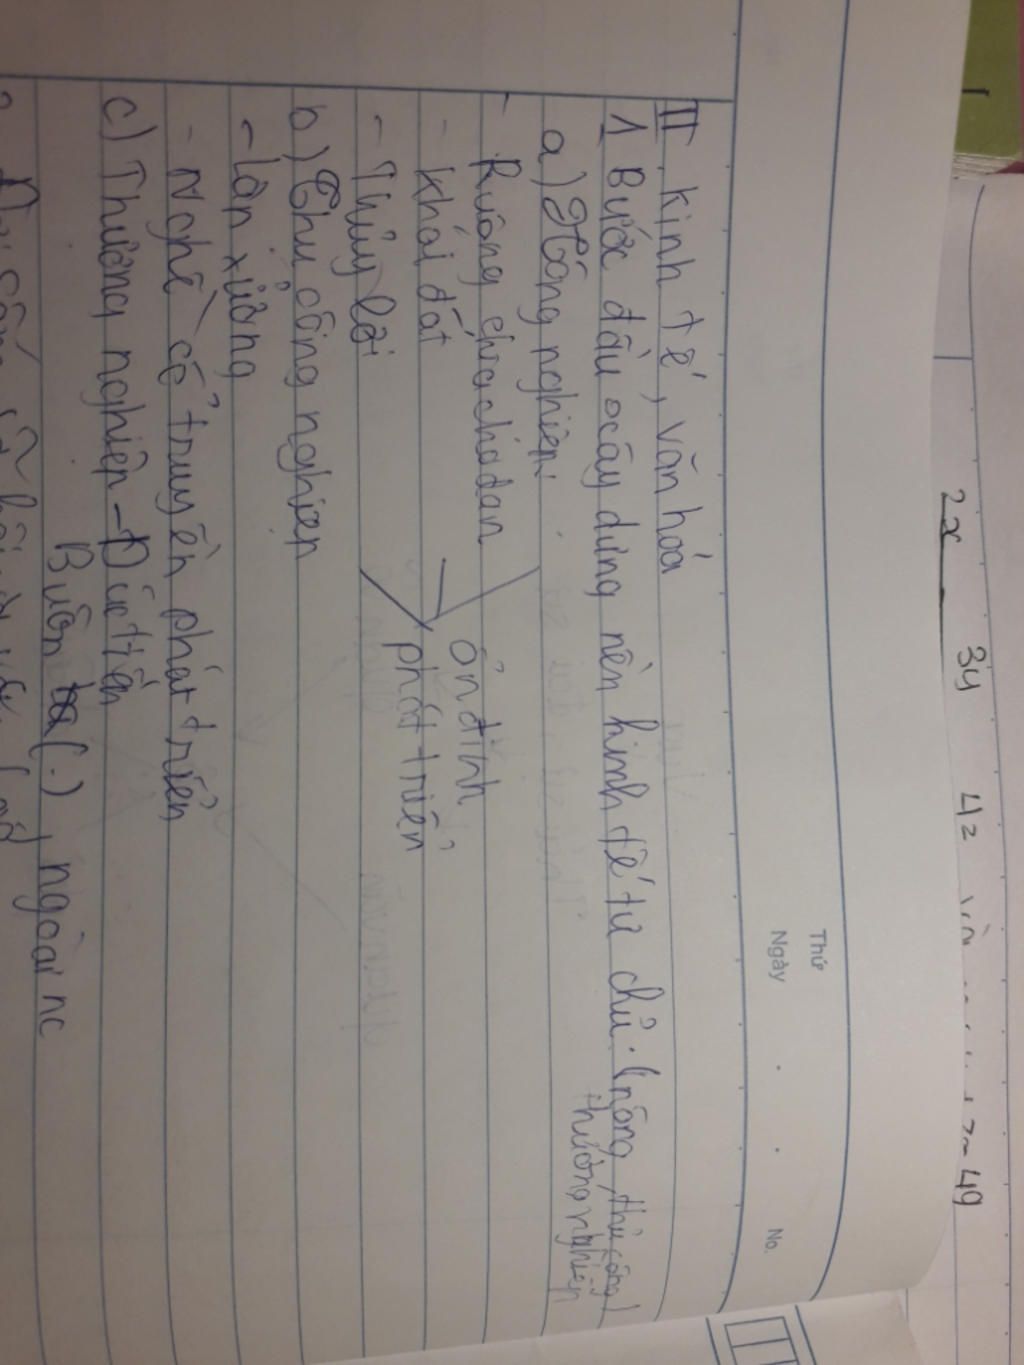 Thứ
Ngày
No.
II. Kinh tế, văn hoá
1 Bước đầu xây dựng nền kinh tế tự chủ. (nông, thủ công,
thương nghiệp
a) Nông nghiệp:
- Ruộng chia cho dân
ổn định
- Khai đất
phát triển
- Thủy lợi
b) Thủ công nghiệp
- lập xưởng
- Nghề cổ truyền phát triển
c) Thương nghiệp - Đúc tiền
Buôn (.), ngoài nc
2x 34 42
49
1